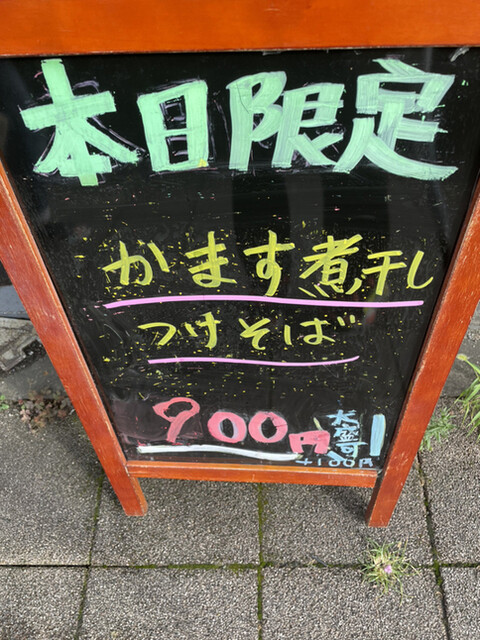 本日限定
かます煮干し
つけそば
900円
大盛可
+100円